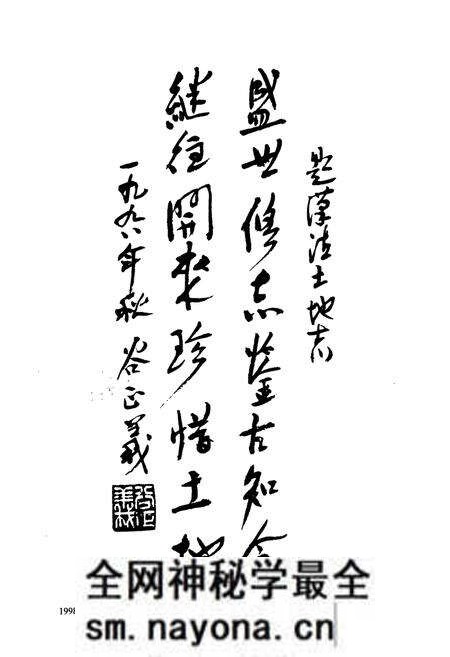 题漢沽土地志
盛世修志鉴古知今
继往開來珍惜土地
一九九八年秋 谷正義
1998
全网神秘学最全
sm.nayona.cn